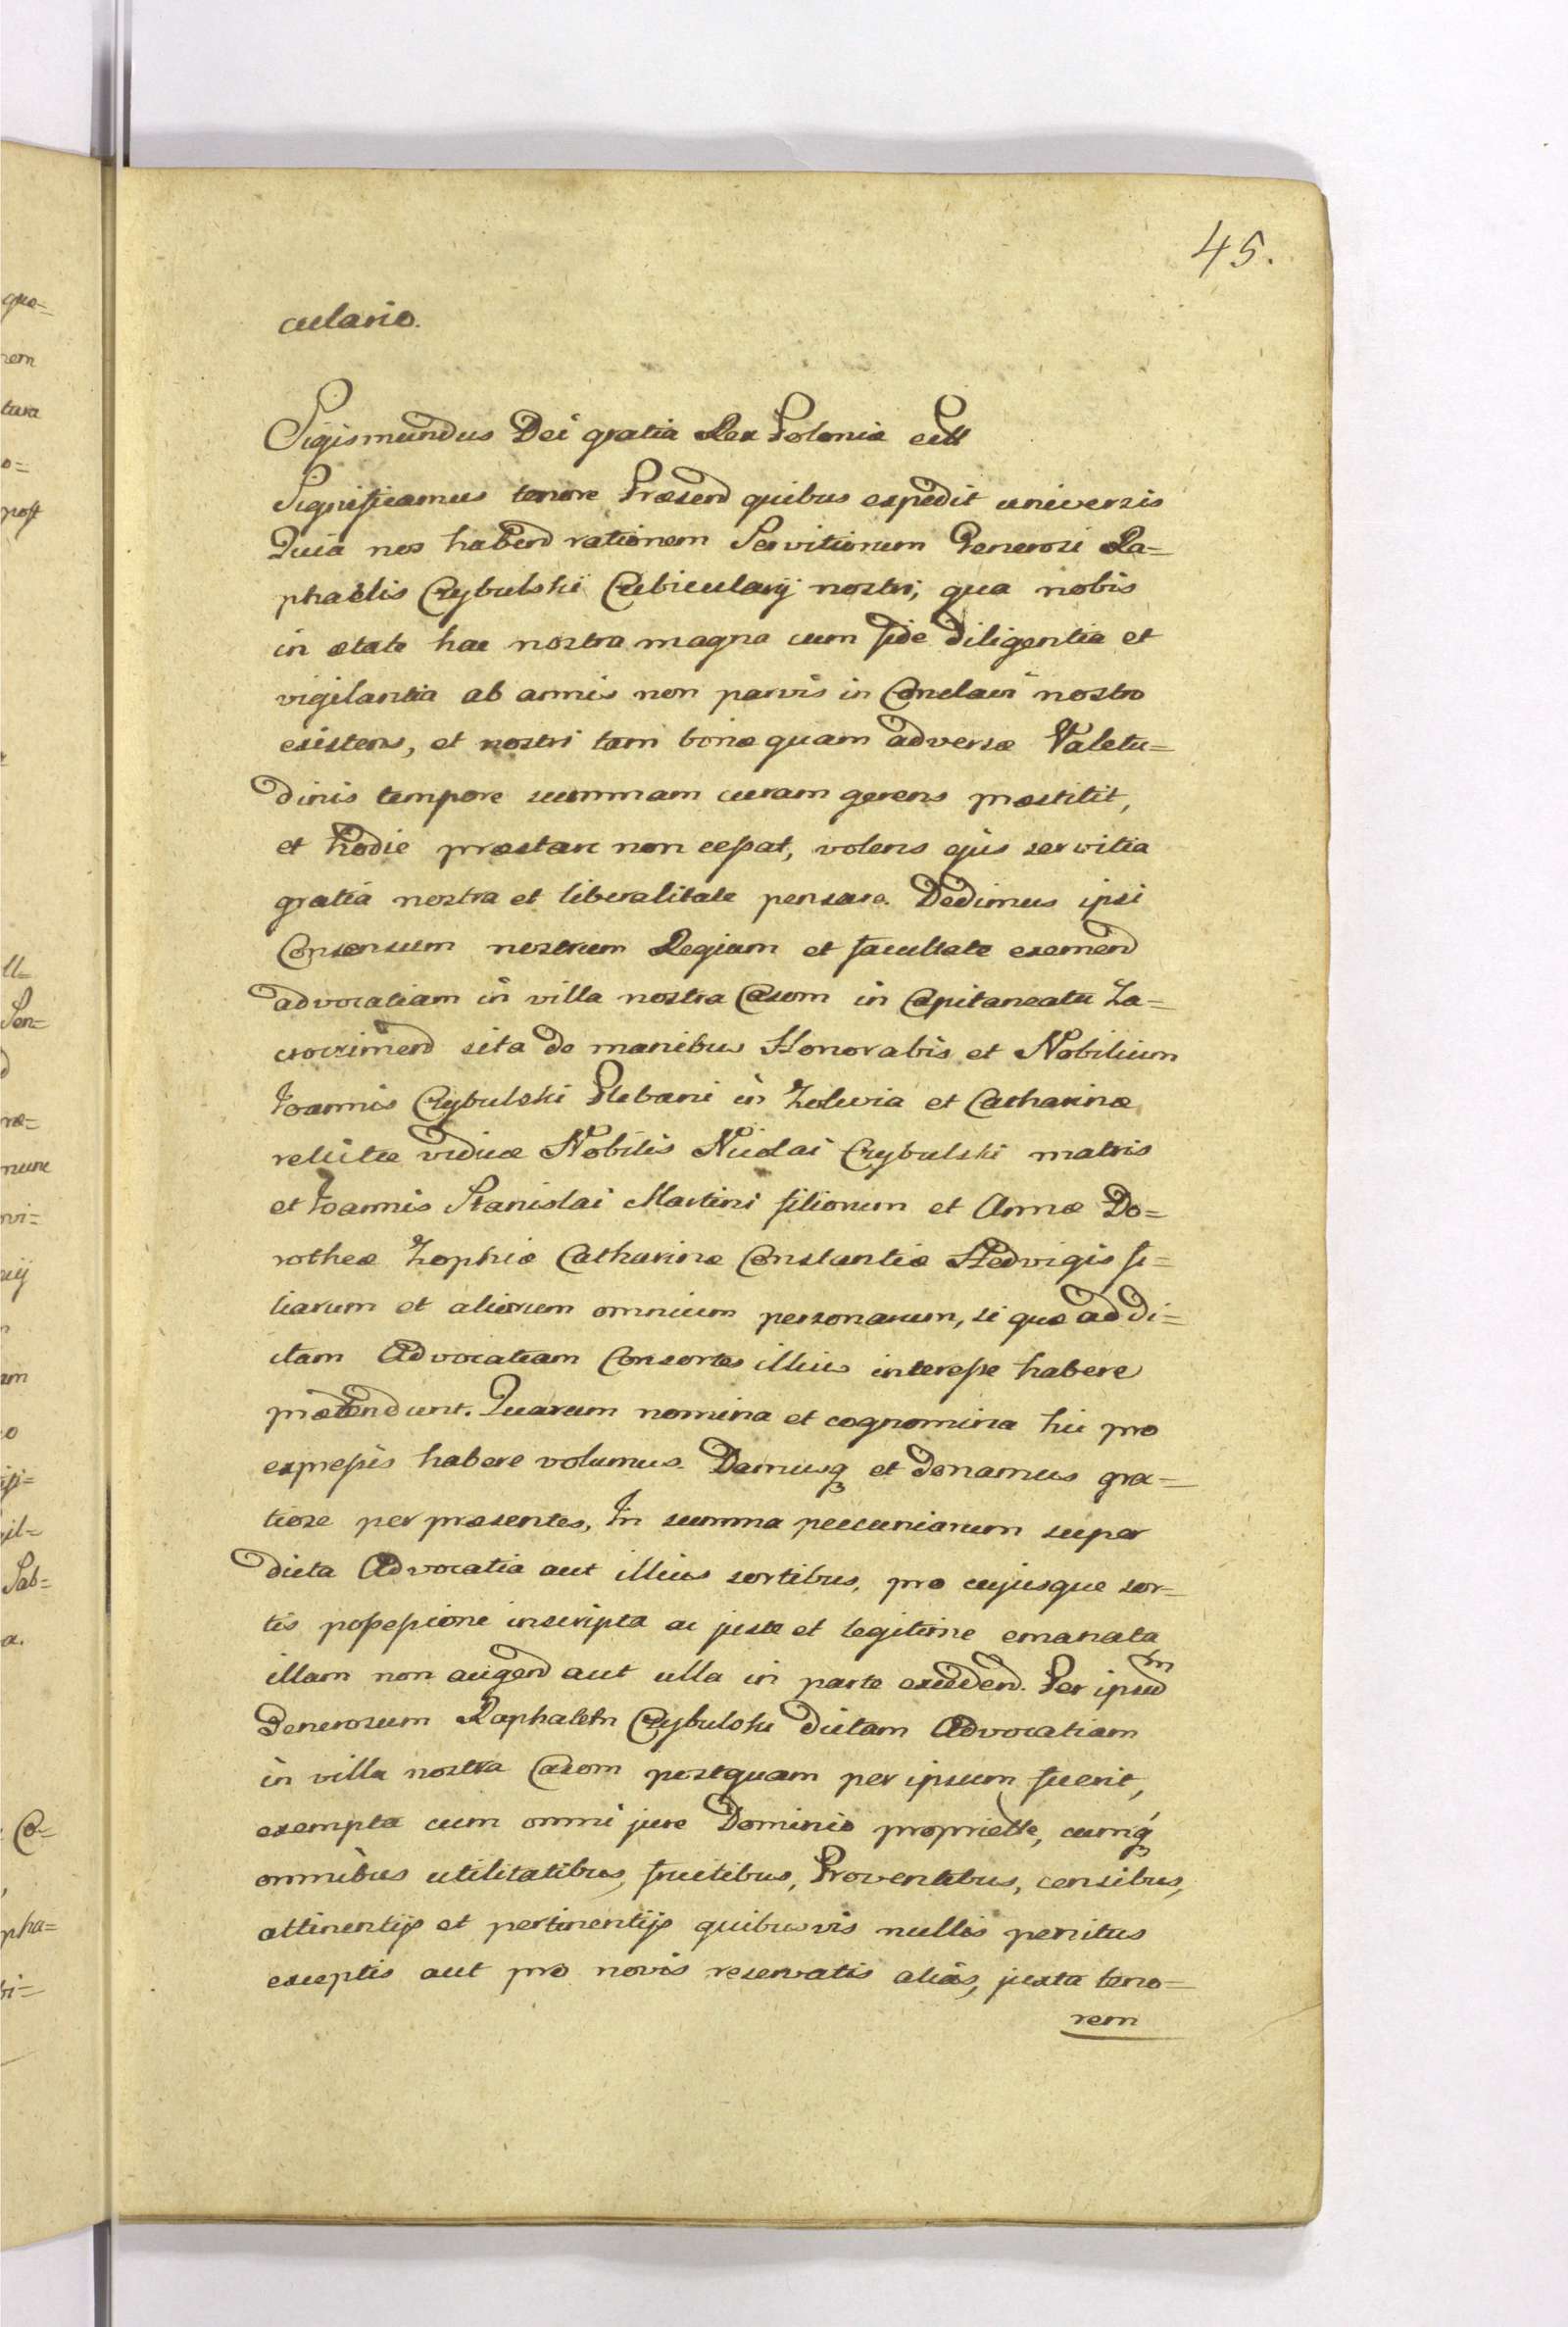 45.
culario.
Sigismundus Dei gratia Rex Poloniæ ett
Significamus tenore Præsend quibus expedit universis
Quia nos habend rationem Servitiorum Generosi Ra=
phaelis Czybulski Cubicularij nostri, qua nobis
in ætate hac nostra magna cum fide diligentia et
vigilantia ab annis non parvis in Conclavi nostro
existens, et nostri tam bonæ quam adversæ Valetu=
dinis tempore summam curam gerens præstitit,
et hodie præstare non cessat, volens ejus servitia
gratia nostra et liberalitate pensare. Dedimus ipsi
Consensum nostrum Regium et facultate exemend
advocatiam in villa nostra Czsom in Capitaneatu Za=
croczimend sita de manibus Honorabis et Nobilium
Joannis Czybulski Plebani in Zoluvia et Catharinæ
relictæ viduæ Nobilis Nicolai Czybulski matris
et Joannis Stanislai Martini filiorum et Annæ Do=
rotheæ Zophiæ Catharinæ Constantiæ Hedvigis fi=
liarum et aliorum omnium personarum, si quæ ad di=
ctam Advocatiam Consortes illius interesse habere
prætendunt. Quarum nomina et cognomina hic pro
expressis habere volumus. Damusq et donamus gra=
tiose per præsentes, In summa pecuniarum super
dicta Advocatia aut illius sortibus, pro cujusque sor=
tis possessione inscripta ac juste et legitime emanata
illam non augend aut ulla in parte excedend. Per ipsud m
Generosum Raphalem Czybulski dictam Advocatiam
in villa nostra Czsom postquam per ipsum fuerit,
exempta cum omni jure Dominio proprietle, cumq
omnibus utilitatibus, fructibus, Proventibus, censibus,
attinentijs et pertinentijs quibusvis nullis penitus
exceptis aut pro novis reservatis alias, juxta teno=
rem
quo=
rem
tura
o=
post
ll=
Sen=
ræ=
nunc
vi=
il=
Sab=
a.
pha=